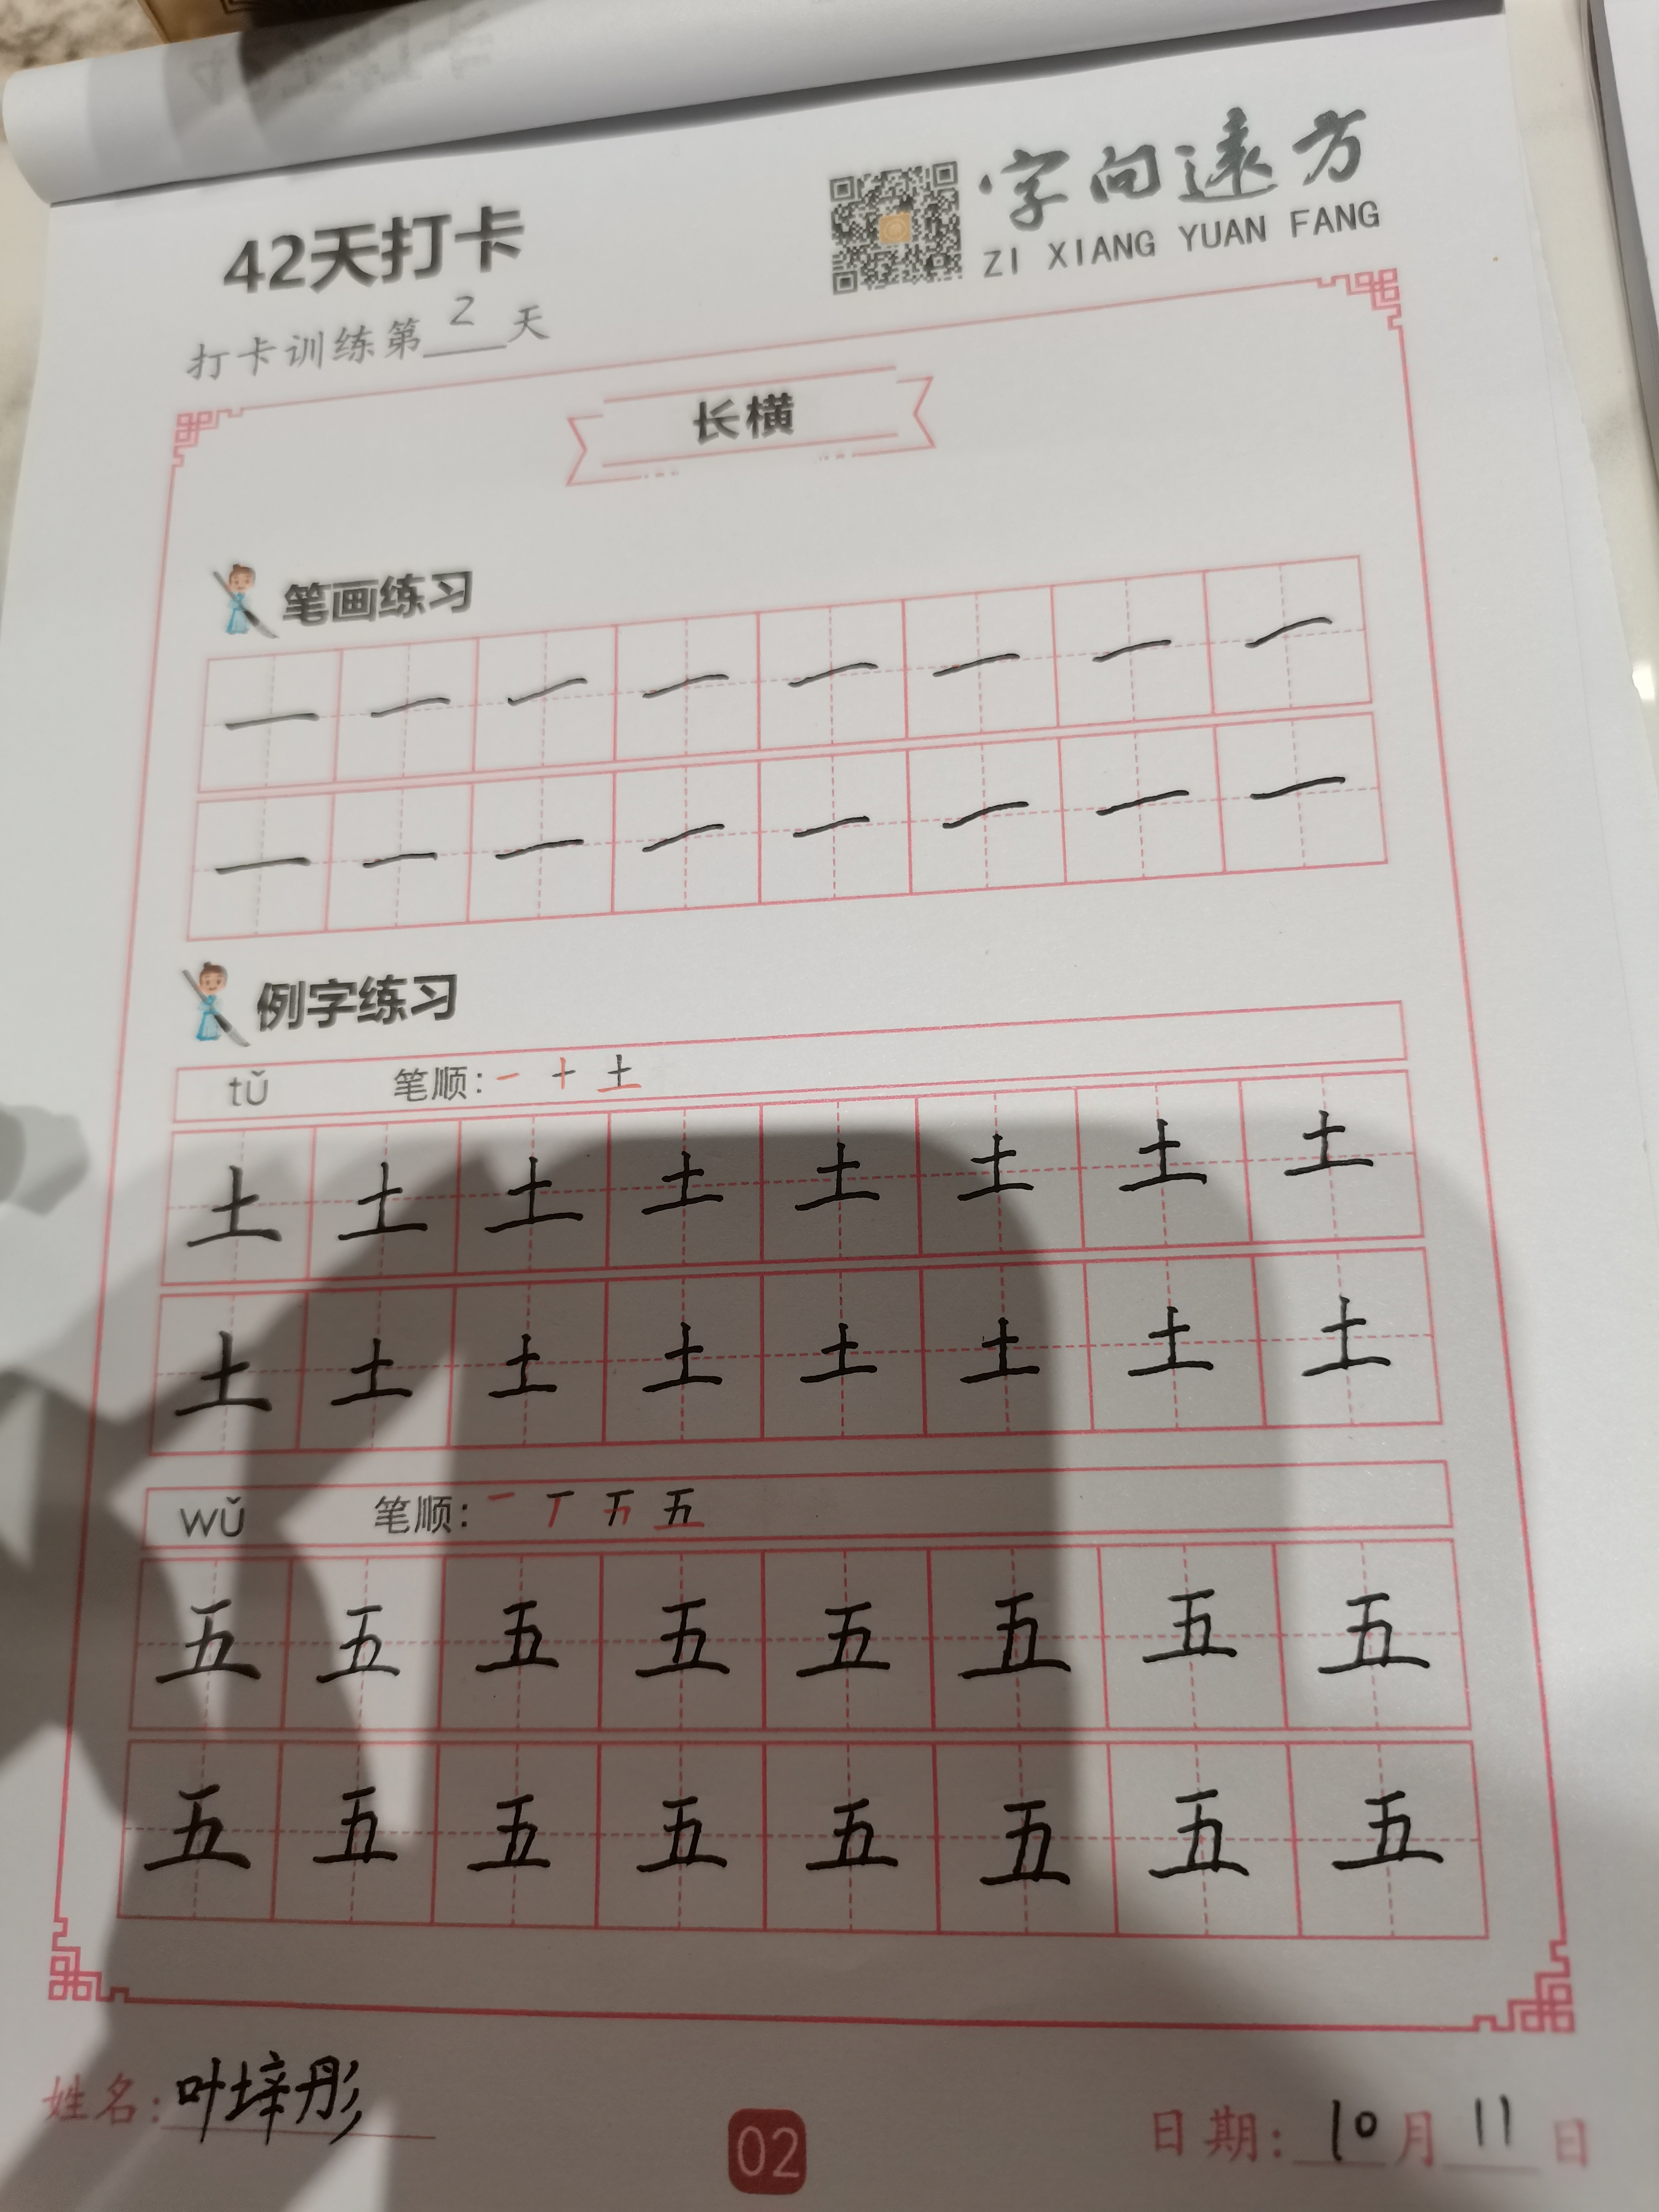 42天打卡
字向远方
ZI XIANG YUAN FANG
打卡训练第2天
长横
笔画练习
一 一 一 一 一 一 一 一
一 一 一 一 一 一 一 一
例字练习
tǔ 笔顺: 一 十 土
土 土 土 土 土 土 土 土
土 土 土 土 土 土 土 土
wǔ 笔顺: 一 丅 五 五
五 五 五 五 五 五 五 五
五 五 五 五 五 五 五 五
姓名: 叶梓彤
02
日期: 10月11日